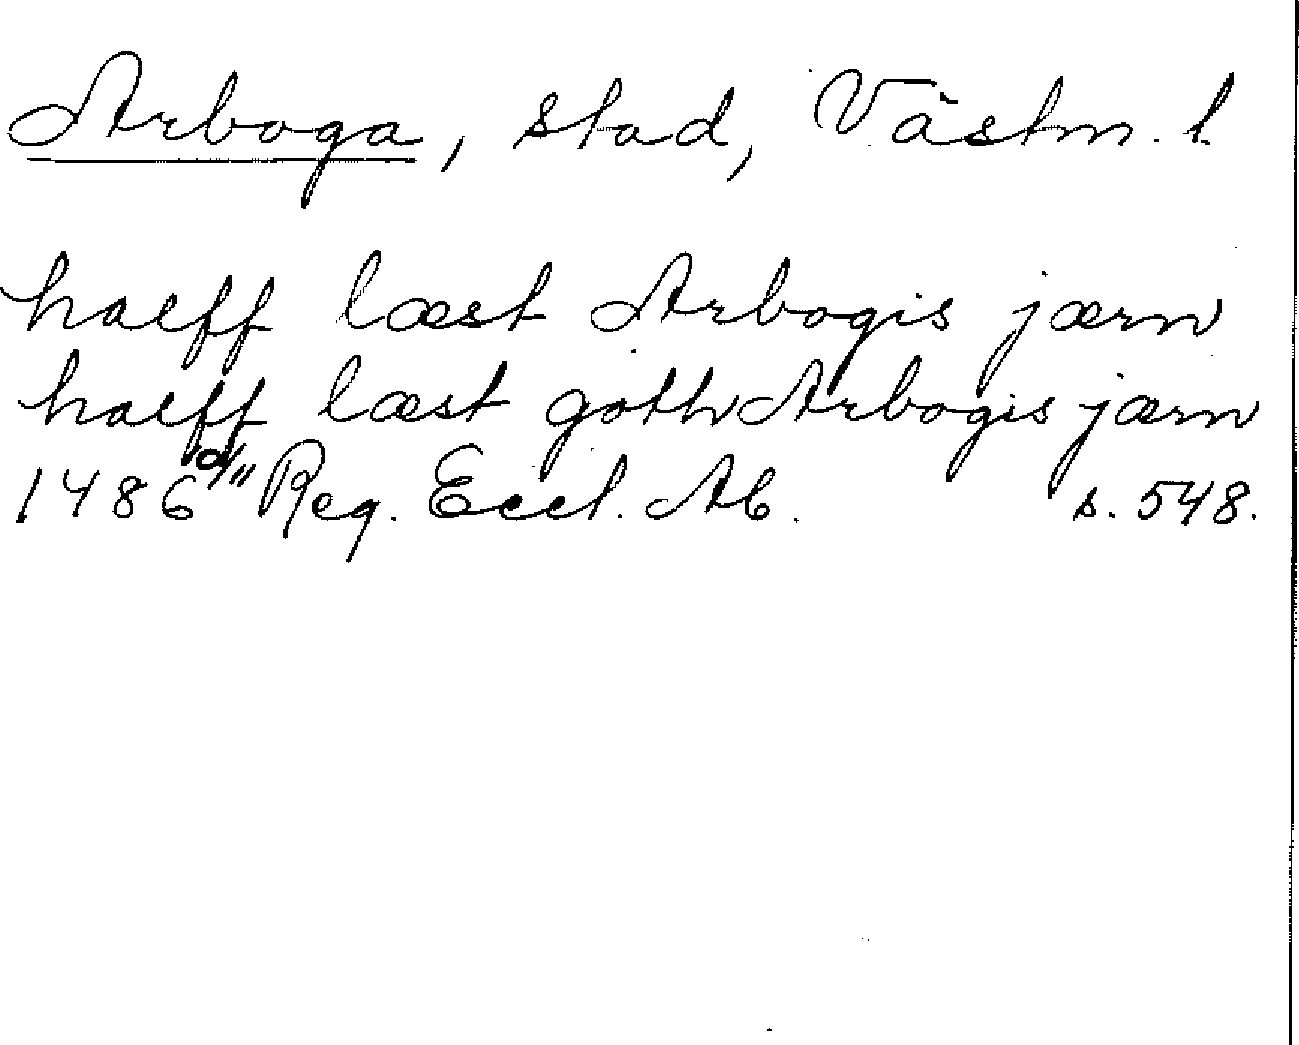 Arboga, stad, Västm. l.
halff læst Arbogis jærn
halff læst goth Arbogis jærn
1486 Reg. Eccl. Ab. s. 548.